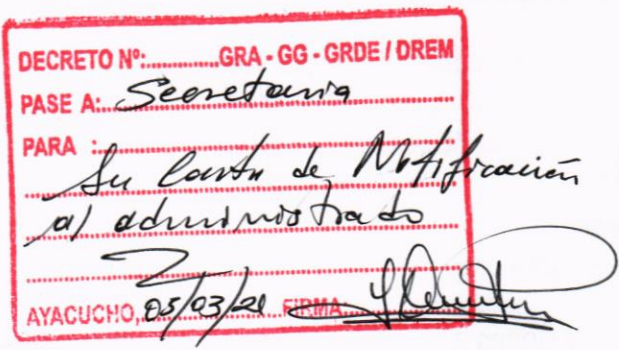 DECRETO Nº:............GRA - GG - GRDE / DREM
PASE A:... Secretaria
PARA :
Su Carta de Notificación
al administrado
AYACUCHO, 05/03/21 FIRMA: